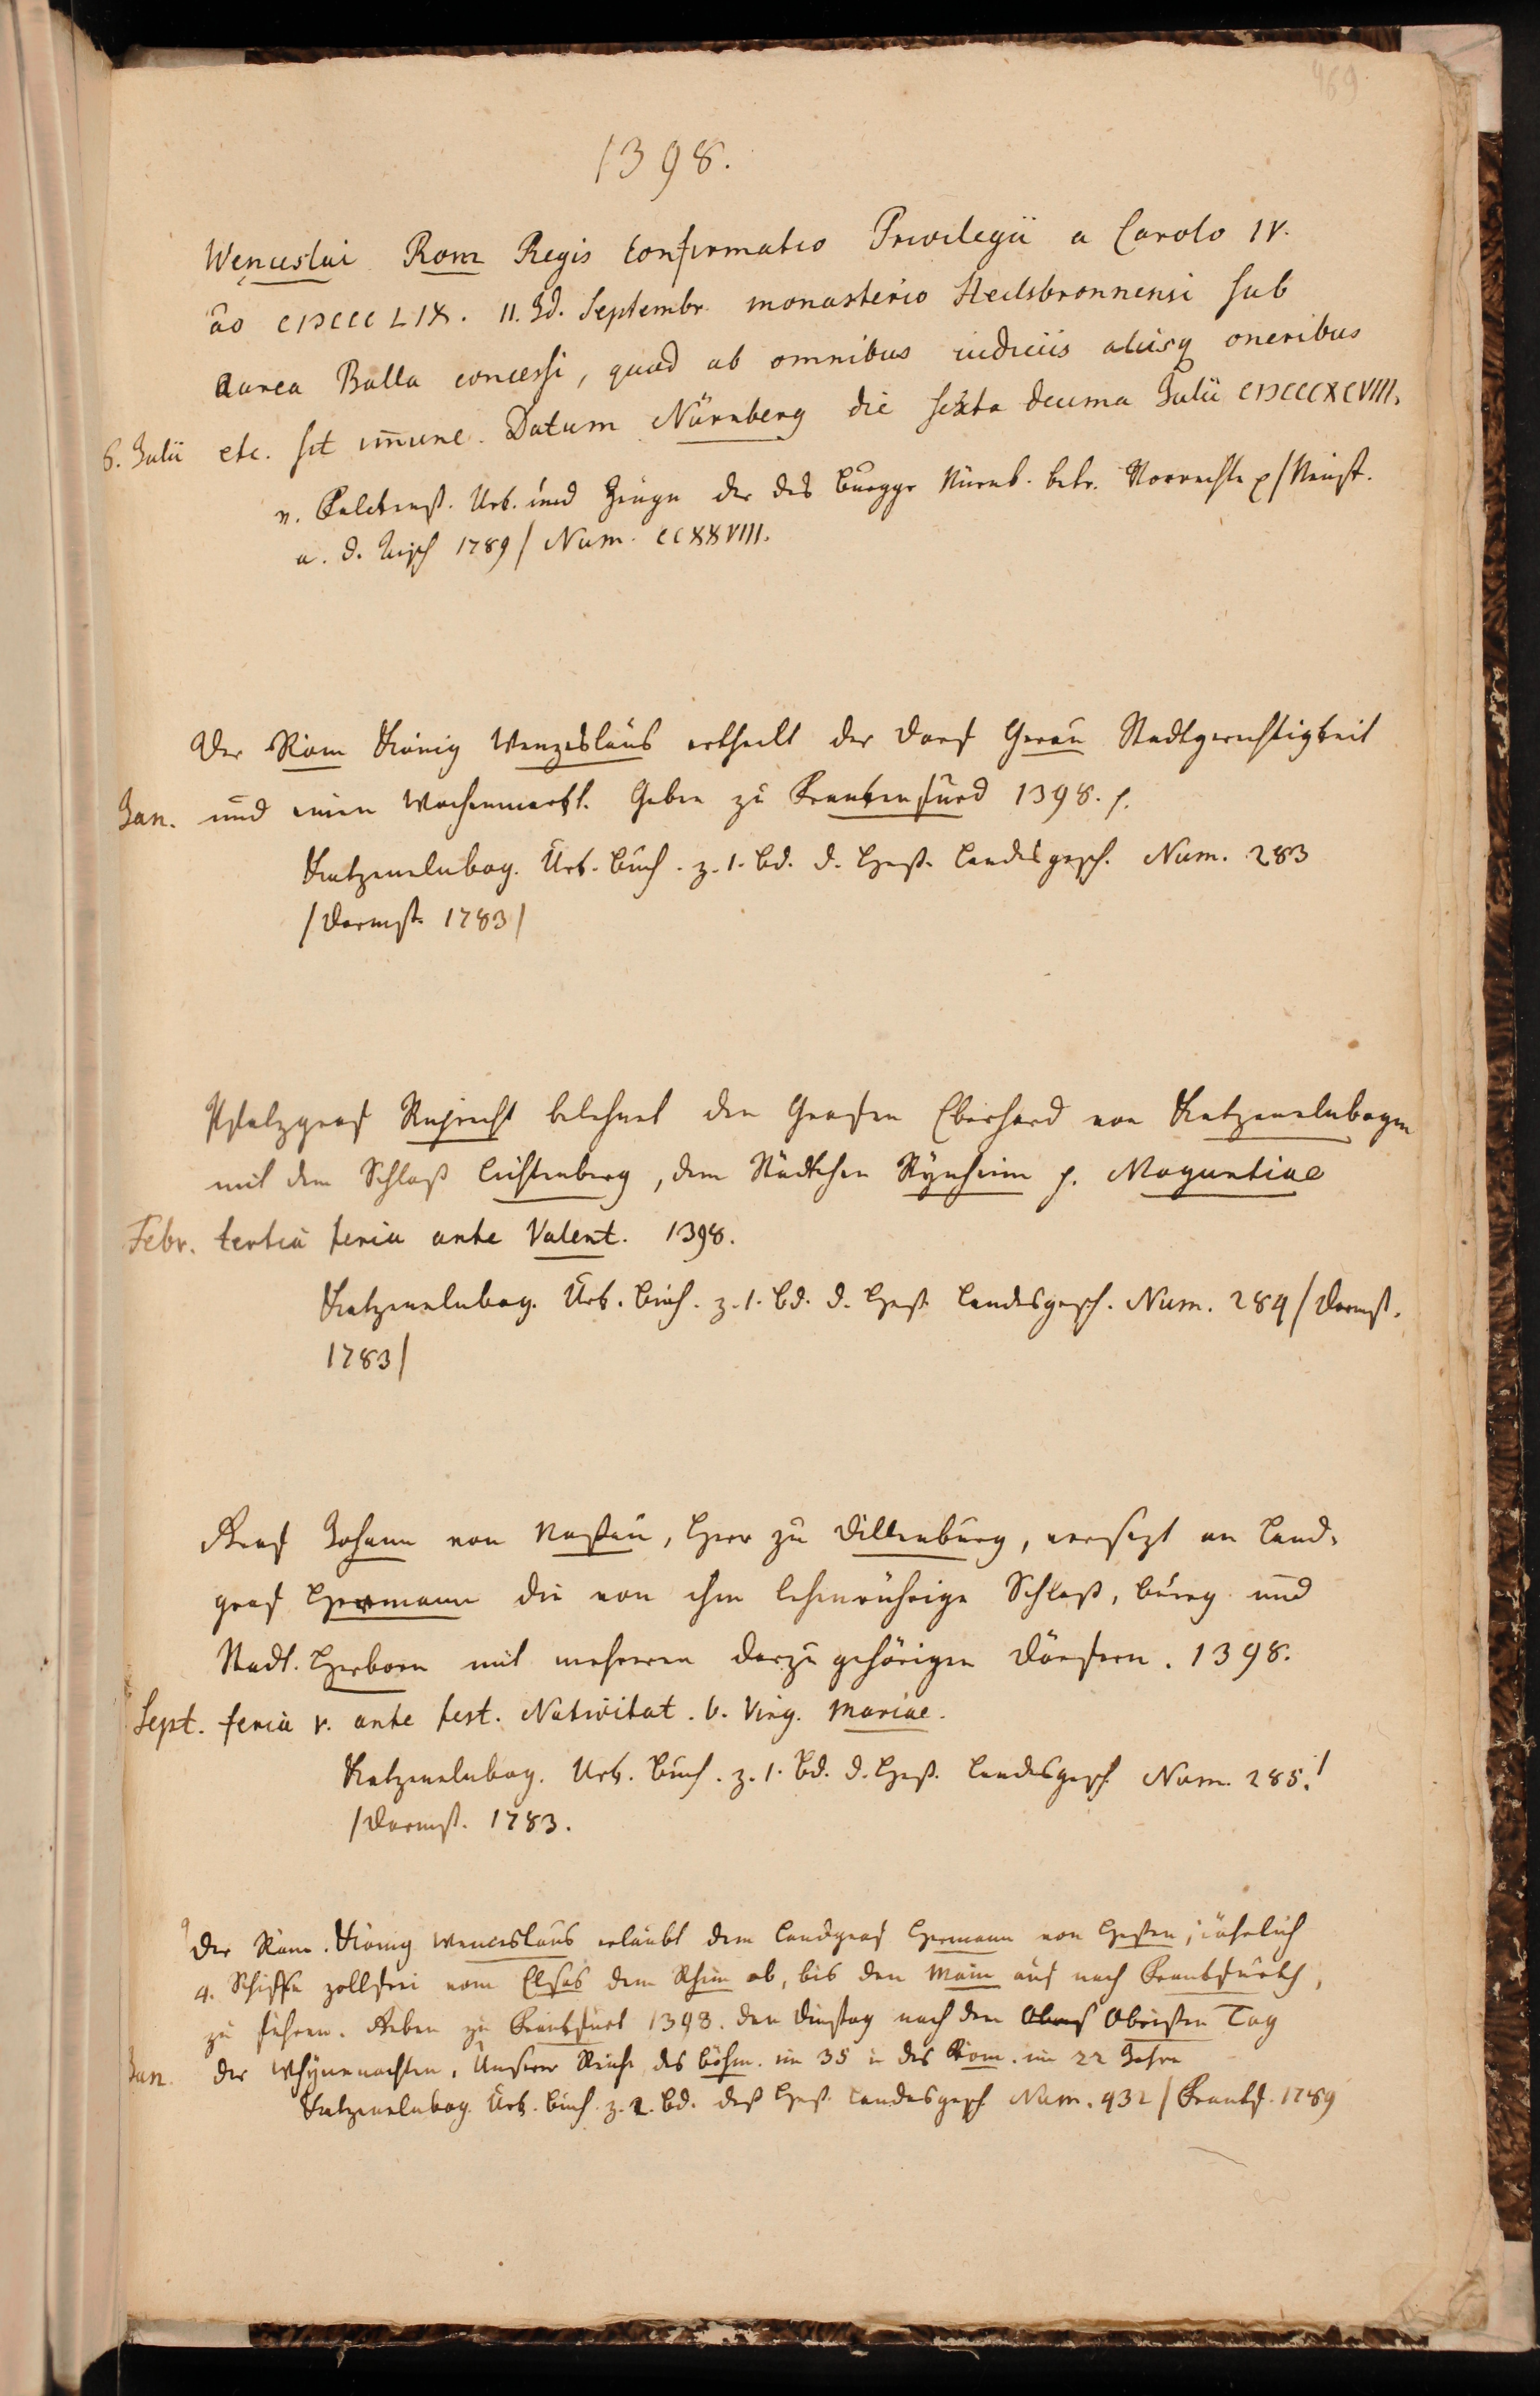 469
1398.
Wenceslai Rom Regis Confirmatio Privilegii a Carolo IV.
ão CIƆCCC LIX. II. Id. Septembr. monasterio Heilsbronnensi sub
aurea Bulla concessi, quod ab omnibus iudiciis aliisq oneribus
6. Julii etc. sit im̄une. Datum Nürnberg die sexta decima Julii CIƆCCCXCVIII.
v. Falckenst. Urk. und Zeugn der des Burggr Nürnb. betr. Vorrechte p/Neust.
a. d. Aisch 1789/ Num. CCXXVIII.
Der Röm König Wenzeslaus ertheilt der Dorf Gerau Stadtgerechtigkeit
Jan. und einen Wochenmarkt. Geben zu Frankenfurd 1398. p.
Katzenelnbog. Urk. Buch. z. 1. Bd. d. Heß. Landesgesch. Num. 283
/Darmst. 1783/
Pfalzgraf Ruprecht belehnet den Grafen Eberhard von Katzenelnbogen
mit dem Schloß Lichtenberg, dem Städtchen Rynheim p. Moguntiae
Febr. tertia feria ante Valent. 1398.
Katzenelnbog. Urk. Buch. z. 1. Bd. d. Heß. Landesgesch. Num. 284/Darmst.
1783/
Graf Johann von Naßau, Herr zu Dillenburg, versezt an Land-
graf Hermann die von ihm lehenrührige Schloß, Burg und
Stadt. Herborn mit mehreren darzu gehörigen Dörfern. 1398.
Sept. feria v. ante fest. Nativitat. b. Virg. Mariae.
Katzenelnbog. Urk. Buch. z. 1. Bd. d. Heß. Landesgesch Num. 285./
/Darmst. 1783.
Der Röm. König Wenceslaus erlaubt dem Landgraf Hermann von Heßen, jährlich
4. Schiffe zollfrei vom Elsas dem Rhein ab, bis den Main auf nach Frankfurth,
zu führen. Geben zu Frankfurt 1398. den Dinstag nach dem Obrist Obristen Tag
Jan. der Whynnachten, Unserer Reiche des böhm. im 35 u des Röm. im 22 Jahre
Katzenelnbog. Urk. Buch. z. 2. Bd. deß Heß. Landesgesch Num. 432/Frankf. 1789